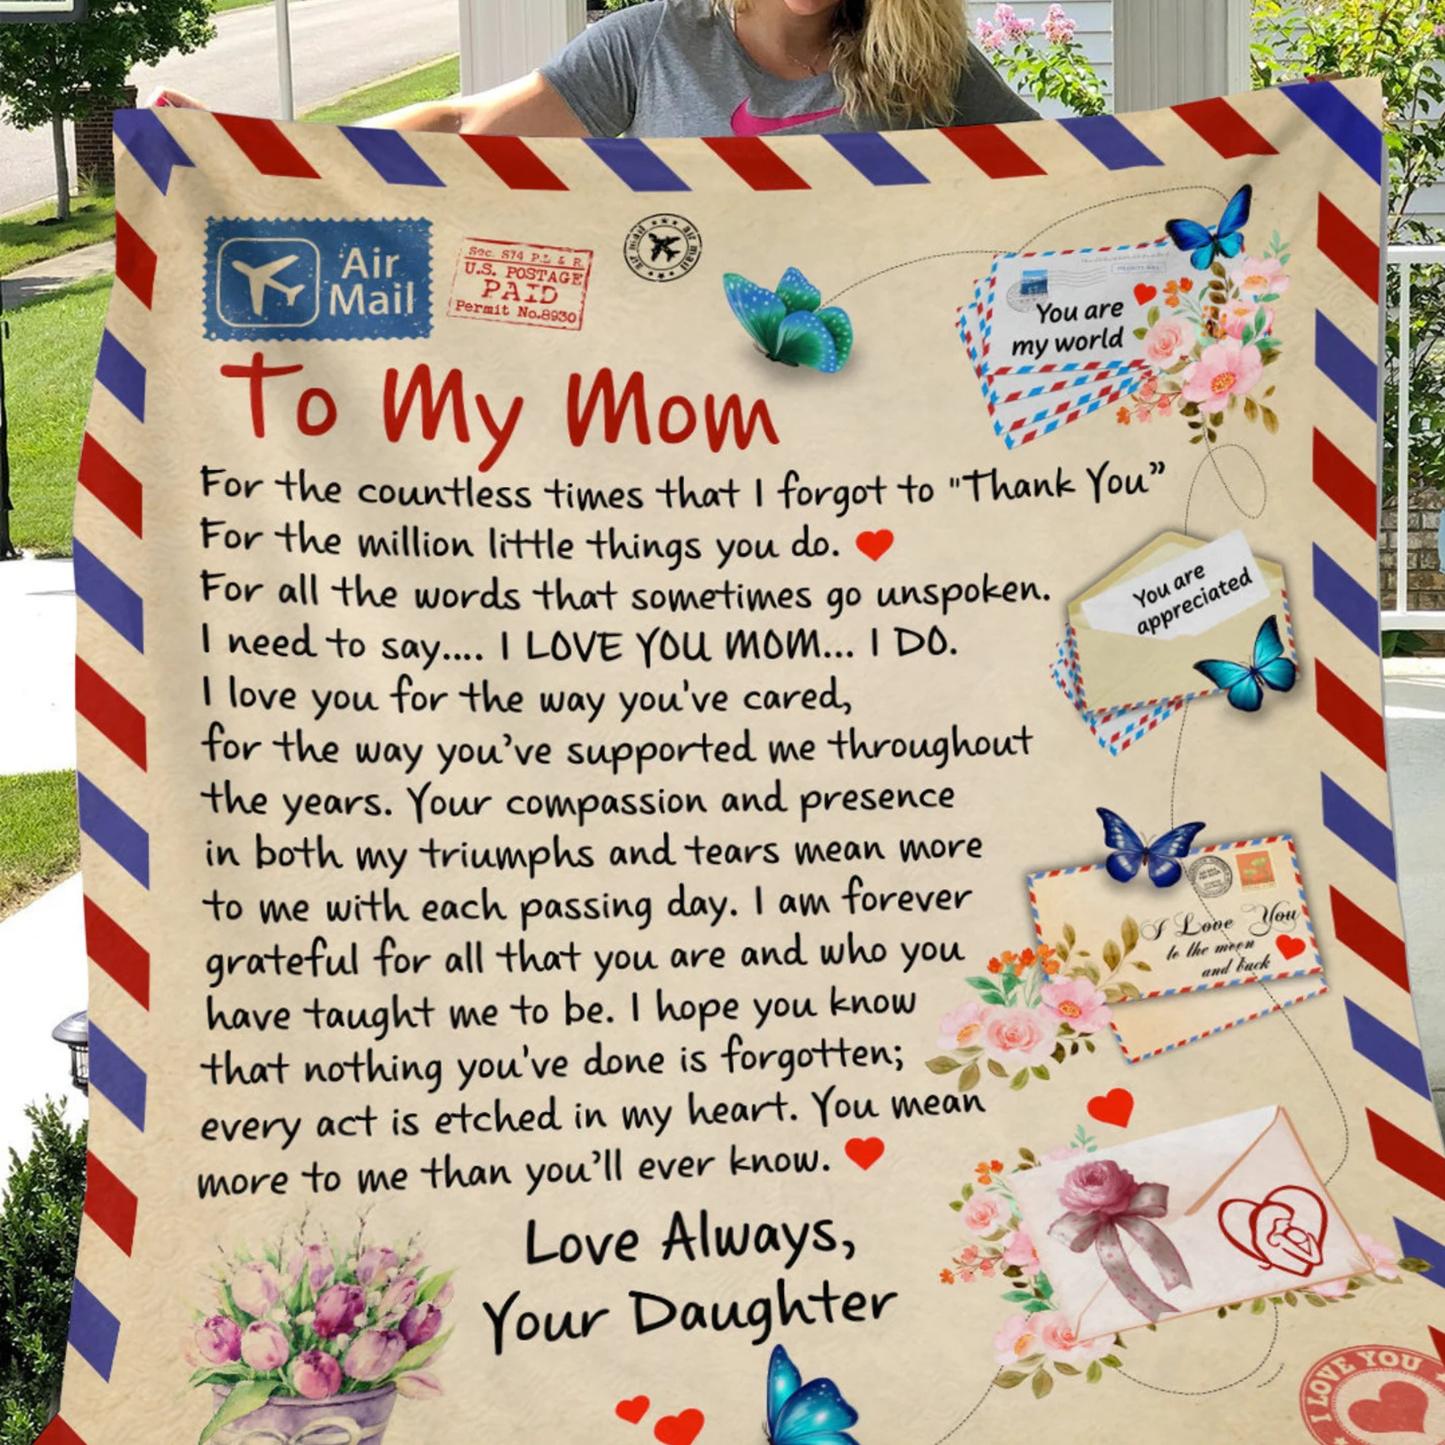 Air
Mail
Sec. 574 P.L & R.
U.S. POSTAGE
PAID
Permit No.8930
air mail
air mail
You are
my world
To My Mom
For the countless times that I forgot to "Thank You”
For the million little things you do.
For all the words that sometimes go unspoken.
I need to say.... I LOVE YOU MOM... I DO.
I love you for the way you've cared,
for the way you’ve supported me throughout
the years. Your compassion and presence
in both my triumphs and tears mean more
to me with each passing day. I am forever
grateful for all that you are and who you
have taught me to be. I hope you know
that nothing you've done is forgotten;
every act is etched in my heart. You mean
more to me than you’ll ever know.
You are
appreciated
I Love You
to the moon
and back
Love Always,
Your Daughter
I LOVE YOU